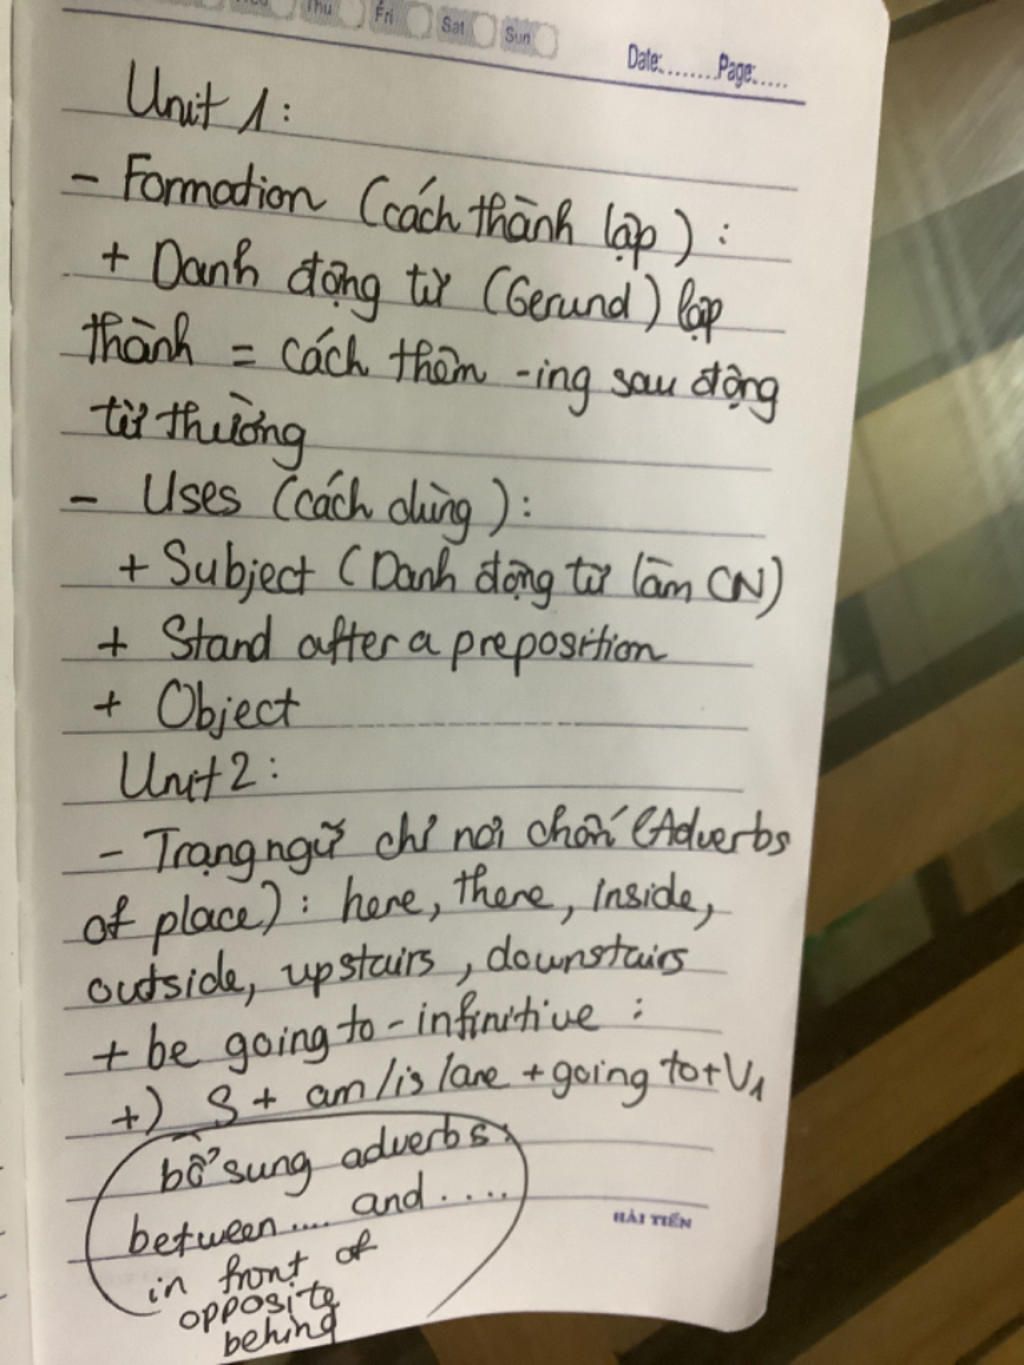 Thu Fri Sat Sun
Date:....... Page:.....
Unit 1:
- Formation (cách thành lập):
+ Danh động từ (Gerund) lập
thành = cách thêm -ing sau động
từ thường
- Uses (cách dùng):
+ Subject (Danh động từ làm CN)
+ Stand after a preposition
+ Object
Unit 2:
- Trạng ngữ chỉ nơi chốn (Adverbs
of place): here, there, inside,
outside, upstairs, downstairs
+ be going to - infinitive :
+) S + am/is/are + going to + V1
bổ sung adverbs:
between .... and ....
HẢI TIẾN
in front of
opposite
behind